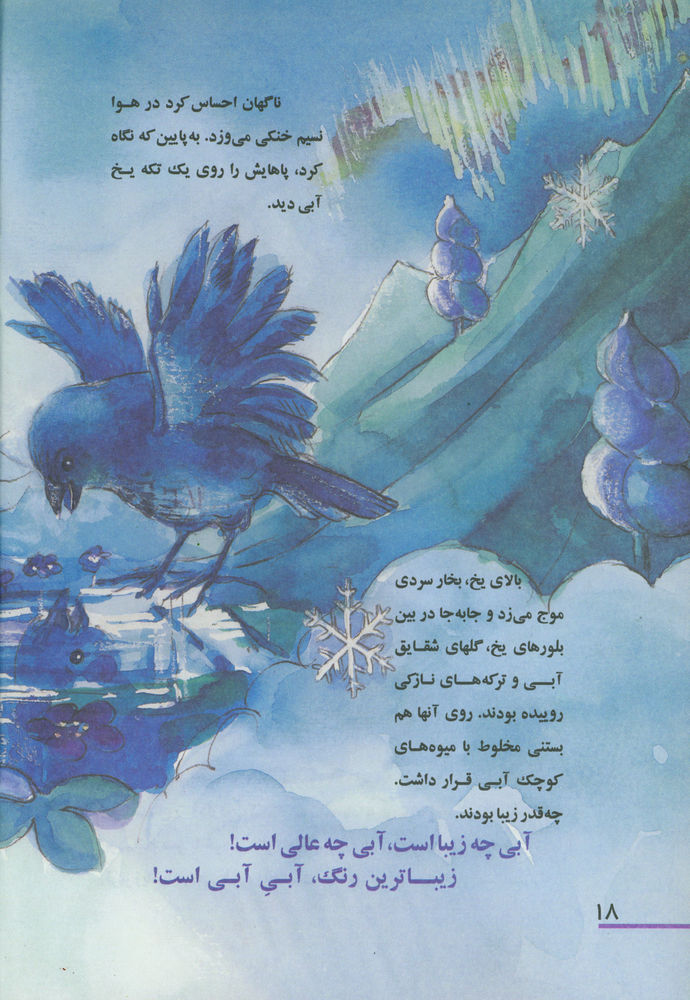 ناگهان احساس کرد در هوا
نسیم خنکی می‌وزد. به پایین که نگاه
کرد، پاهایش را روی یک تکه یخ
آبی دید.
بالای یخ، بخار سردی
موج می‌زد و جابه‌جا در بین
بلورهای یخ، گلهای شقایق
آبی و ترکه‌های نازکی
روییده بودند. روی آنها هم
بستنی مخلوط با میوه‌های
کوچک آبی قرار داشت.
چه‌قدر زیبا بودند.
آبی چه زیبا است، آبی چه عالی است!
زیباترین رنگ، آبیِ آبی است!
۱۸